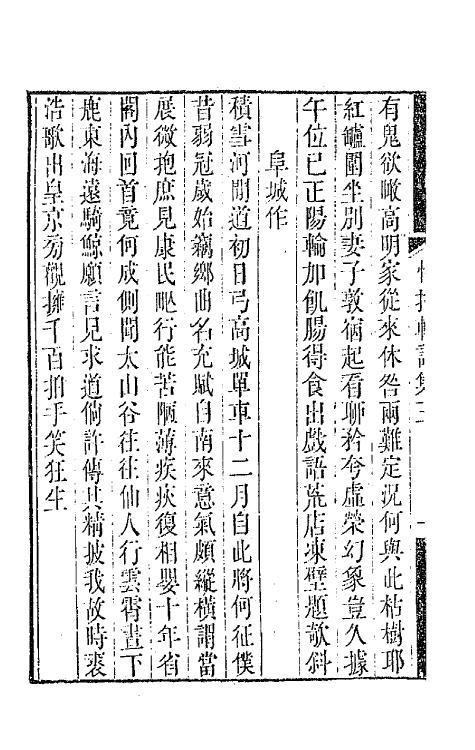 有鬼欲瞰高明家從來休咎兩難定況何與此枯樹耶
紅罏圍坐別妻子敦宿起看聊矜夸虛榮幻象豈久據
午位已正陽輪加飢腸得食出戲語荒店凍壁題欹斜
阜城作
積雪河間道初日弓高城單車十二月自此將何征僕
昔弱冠歲始竊鄉曲名充賦自南來意氣頗縱橫謂當
展微抱庶見康民甿行能苦陋薄疾疢復相嬰十年省
閣內回首竟何成側聞太山谷往往仙人行雲霄晝下
鹿東海遠騎鯨願言見求道倘許傳其精披我故時裘
浩歌出皇京旁觀擁千百拍手笑狂生